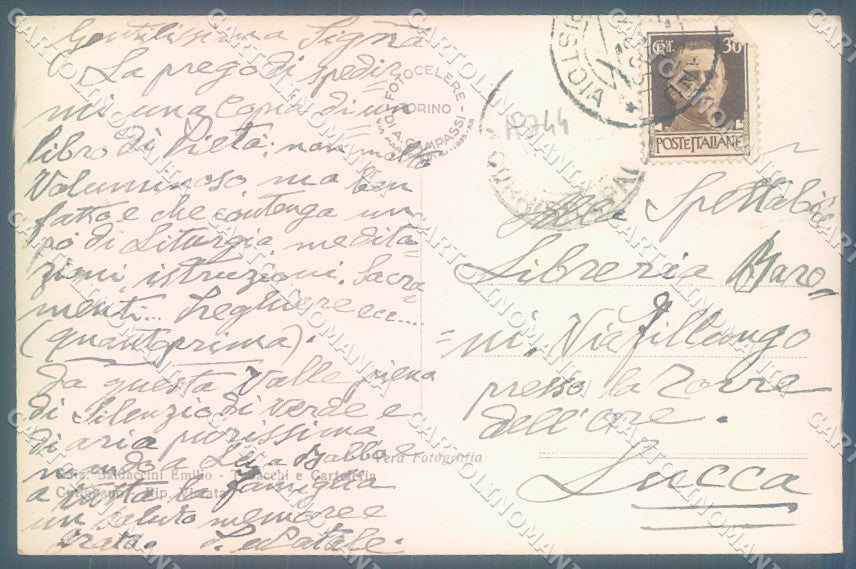 Gentilissima Signa
La prego di spedir
mi una Copia di un
libro di Pietà; non molto
Voluminoso, ma ben
fatto e che contenga un
po' di Liturgia, medita
zioni, istruzioni, Sacra-
menti... Preghiere ecc....
(quantoprima).
Da questa Valle piena
di Silenzio di verde e
di aria purissima
mando a Lei, Babbo e
a tutta la famiglia
un saluto memore e
grato.
FOTOCELERE
TORINO
DI A. CAMPASSI
PISTOIA
18744
CENT. 30
POSTE ITALIANE
Alla Spettabile
Libreria Baro-
=ni. Via Fillungo
presso la Torre
dell'ore.
Lucca
Vera Fotografia
Baldaccini Emilio - Tabacchi e Cartoleria
Rip. Vietata
CARTOLINOMANIA